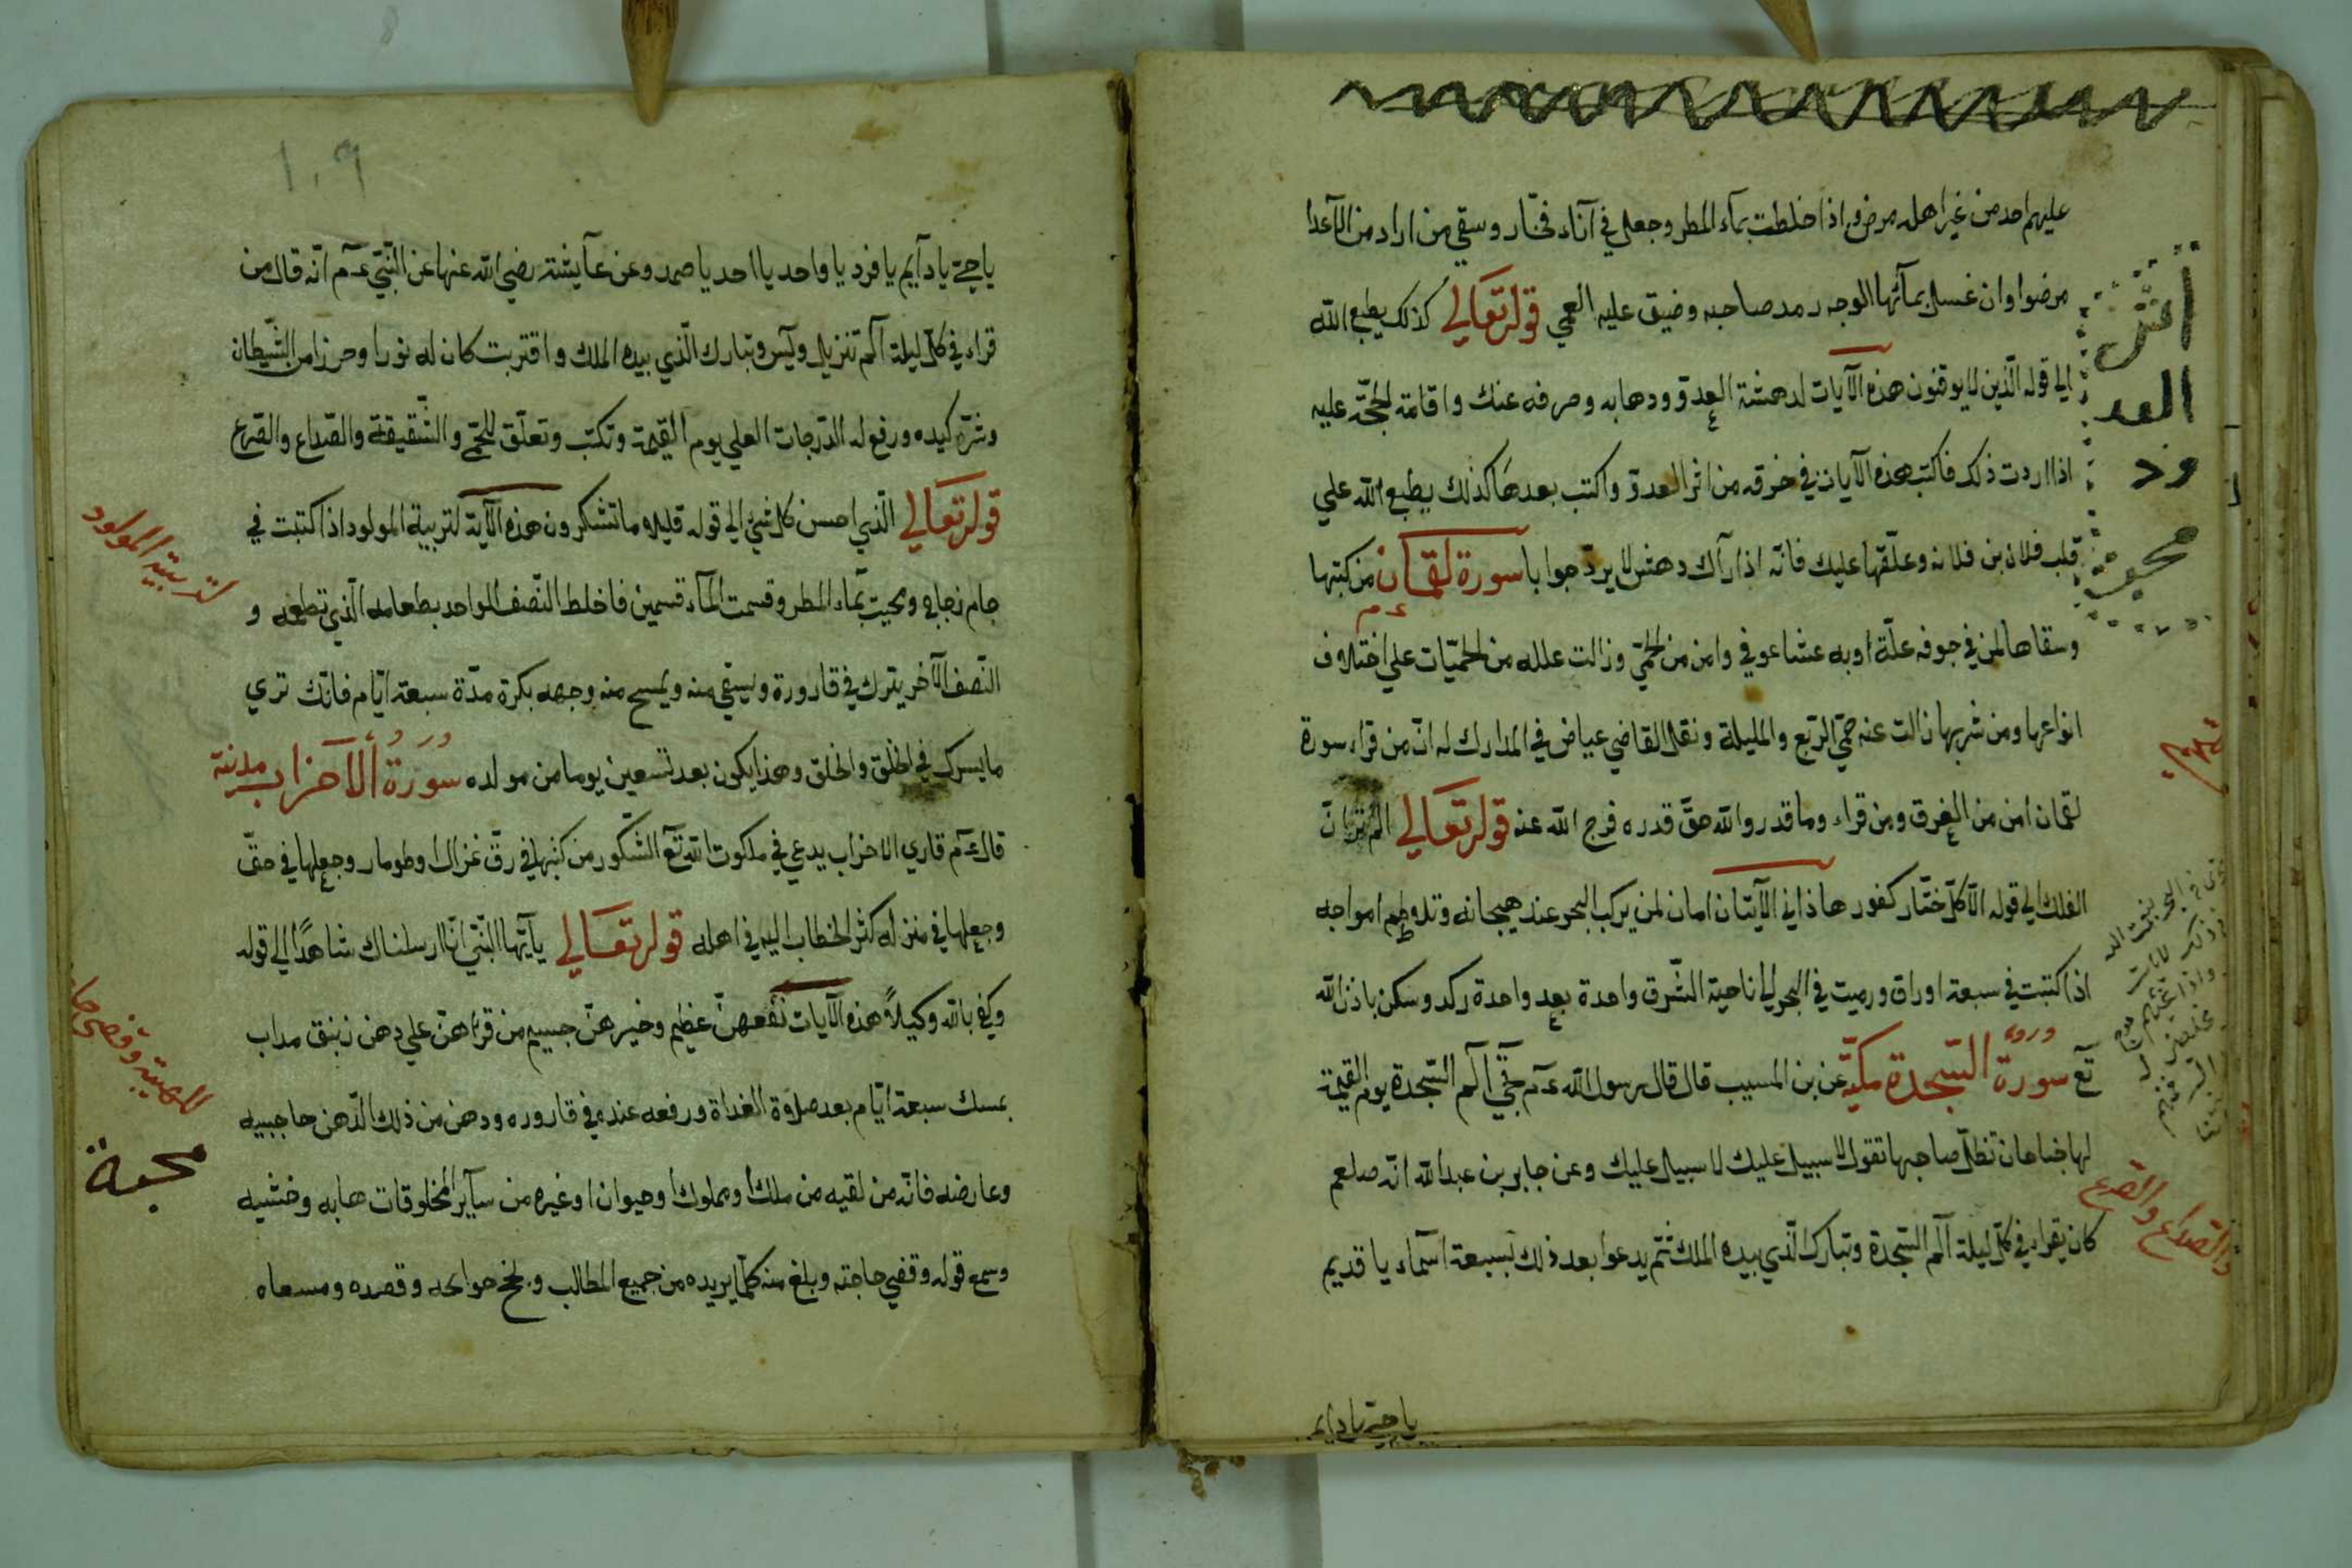 عليهم احد من غير اهله مرض واذا خلطت بمآء المطر وجعل في آناء فخّار وسقي من اراد من الآعدا
مرضوا وان غسل بمآئها الوجه رمد صاحبه وضيق عليه العمي قوله تعالي كذلك يطبع الله
الي قوله الّذين لا يوقنون هذه الآيات لدهشة العدوّ وذهابه وصرفه عنك واقامة الحجّة عليه
اذا اردت ذلك فاكتب هذه الآيات في خرقه من اثر العدوّ واكتب بعدها كذلك يطبع الله علي
قلب فلان بن فلانه وعلّقها عليك فانّه اذا رآك دهش لا يردّ جوابا سورة لقمان من كتبها
وسقاها لمن في جوفه علّة اوبه عشا عوفي وامن من الحمّي وزالت علله من الحميّات علي اختلاف
انواعها ومن شربها زالت عنه حمّي الربع والمليلة ونقل القاضي عياض في المدارك له انّ من قراء سورة
لقمان امن من الغرق ومن قراء وما قدروا الله حقّ قدره فرج الله عنه قوله تعالي الم تر انّ
الفلك الي قوله الّا كلّ ختّار كفور هاذاني الآيتان امان لمن يركب البحر عند هيجانه وتلاوطم امواجه
اذا كتبت في سبعة اوراق ورميت في البحر الي ناحية الشّرق واحدة بعد واحدة ركد وسكن باذن الله
تع سورة السّجدة مكيّه عن بن المسيب قال قال رسول الله ع م تجّي آلم السّجدة يوم القيمة
لها جناحان تظلّ صاحبها تقول لا سبيل عليك لا سبيل عليك وعن جابر بن عبد الله انّه صلعم
كان يقراء في كلّ ليلة آلم السّجدة وتبارك الّذي بيده الملك ثمّ يدعوا بعد ذلك بسبعة اسمآء يا قديم
يا حيّ يا دايم
اثر
العد
ود
والصداع والصرع
١٠٩
يا حيّ يا دآيم يا فرد يا واحد يا احد يا صمد وعن عآيشة رضي الله عنها عن النّبيّ ع م انّه قال من
قراء في كلّ ليلة آلم تنزيل ويس وتبارك الّذي بيده الملك واقتربت كان له نورا وحرزا من الشّيطان
وشرّ كيده ورفع له الدّرجات العلي يوم القيمة وتكتب وتعلّق للحمّي والشّقيقة والصّداع والصّرع
قوله تعالي الّذي احسن كل شئ الي قوله قليلا ما تشكرون هذه الآية لتربية المولود اذا كتبت في
جام زجاج ومحيت بمآء المطر وقسمت المآء قسمين فاخلط النّصف الواحد بطعامه الّذي تطعمه و
النّصف الآخر يترك في قارورة ويسقي منه ويمسح منه وجهه بكرة مدّة سبعة ايّام فانّك تري
ما يسرك في الخلق والخلق وهذا يكون بعد تسعين يوما من مولده سورة الآحزاب مدنية
قال ع م قاري الاحزاب يدعي في ملكوت الله تع الشّكور من كتبها في رقّ غزال او طومار وجعلها في حقّ
وجعلها في منزله كثر الخطاب اليه في اهله قوله تعالي يآيّها النّبيّ انّا ارسلناك شاهدًا الي قوله
وكفي بالله وكيلاً هذه الآيات نفعهنّ عظيم وخيرهنّ جسيم من قراهنّ علي دهن زنبق مداب
بمسك سبعة ايّام بعد صلاوة الغداة ورفعه عنده في قاروره ودهن من ذلك الدّهن حاجبيه
وعارضه فانّه من لقيه من ملك او مملوك او حيوان او غيره من سآير المخلوقات هابه وخشيه
وسمع قوله وقضي حاجته وبلغ منه كلّما يريده من جميع المطالب ونجح حوائجه وقصده ومسعاه
لتربية المولود
محبة